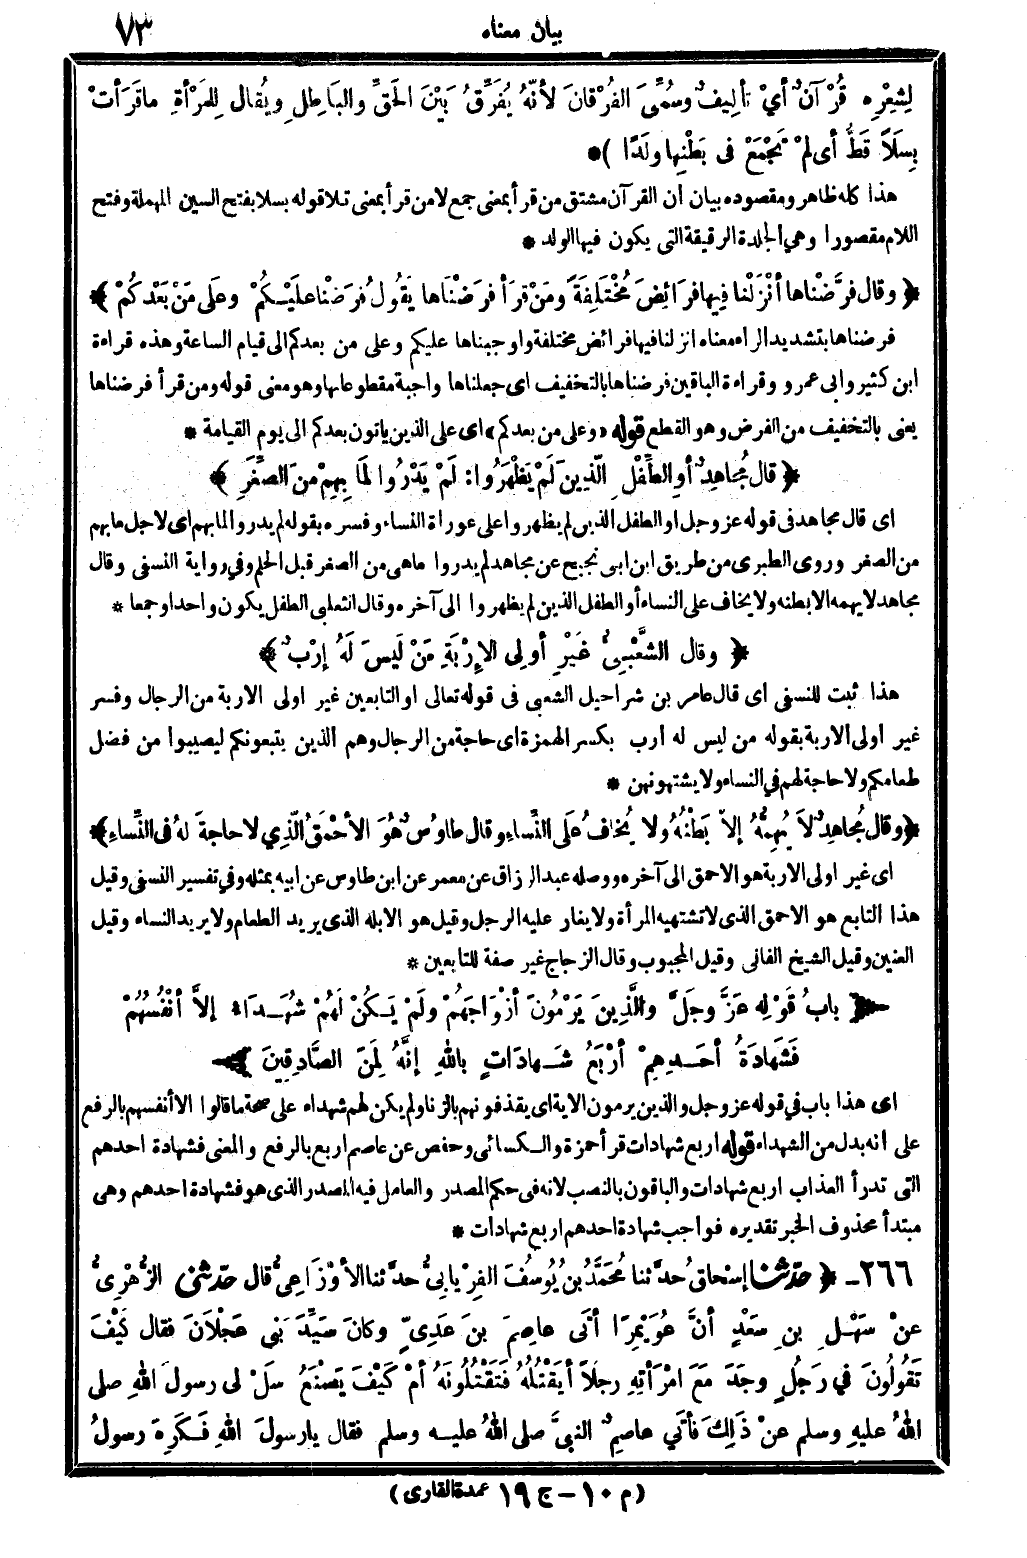 بيان معناه ٧٣
لِشِعْرِهِ قُرْآنٌ أيْ تأليفٌ وسُمِّىَ الفُرْقانَ لأنَّهُ يُفَرِّقُ بَيْنَ الحَقِّ والبَاطِلِ ويُقالُ لِلمَرْأةِ ماقَرَأتْ
بِسَلاً قَطُّ أى لمْ تَجْمَعْ فى بَطْنِها ولَدًا ) *
هذا كله ظاهر ومقصوده بيان أن القرآن مشتق من قرأ بمعنى جمع لا من قرأ بمعنى تلا قوله بسلا بفتح السين المهملة وفتح
اللام مقصورا وهي الجلدة الرقيقة التى يكون فيها الولد *
﴿ وقال فرَّضْناها أنْزَلْنا فِيها فرَائِضَ مُخْتَلِفَةً ومَنْ قرَأ فرَضْنَاها يَقُولُ فرَضْنا عَلَيْكُمْ وعَلى مَنْ بَعْدَكُمْ ﴾
فرضناها بتشديد الراء معناه انزلنا فيها فرائض مختلفة واوجبناها عليكم وعلى من بعدكم الى قيام الساعة وهذه قراءة
ابن كثير وابى عمرو وقراءة الباقين فرضناها بالتخفيف اى جعلناها واجبة مقطوعا بها وهو معنى قوله ومن قرأ فرضناها
يعنى بالتخفيف من الفرض وهو القطع قوله «وعلى من بعدكم» اى على الذين ياتون بعدكم الى يوم القيامة *
﴿ قال مُجاهِدٌ أوِ الطِّفْلِ الَّذِينَ لَمْ يَظْهَرُوا : لَمْ يَدْرُوا لمَا بِهِمْ منَ الصِّغَرِ ﴾
اى قال مجاهد فى قوله عز وجل او الطفل الذين لم يظهروا على عورات النساء وفسره بقوله لم يدروا لما بهم اى لاجل ما بهم
من الصغر وروى الطبرى من طريق ابن ابى نجيح عن مجاهد لم يدروا ماهى من الصغر قبل الحلم وفي رواية النسفى وقال
مجاهد لا يهمه الا بطنه ولا يخاف على النساء أو الطفل الذين لم يظهروا الى آخره وقال الثعلبى الطفل يكون واحدا وجمعا *
﴿ وقال الشَّعْبِىُّ غَيْرِ أُولِى الإِرْبَةِ مَنْ لَيسَ لَهُ إرْبٌ ﴾
هذا ثبت للنسفى اى قال عامر بن شراحيل الشعبي فى قوله تعالى او التابعين غير اولى الاربة من الرجال وفسر
غير اولى الاربة بقوله من ليس له أرب بكسر الهمزة اى حاجة من الرجال وهم الذين يتبعونكم ليصيبوا من فضل
طعامكم ولا حاجة لهم في النساء ولا يشتهونهن *
﴿ وقال مُجاهِدٌ لاَ يُهِمُّهُ إلاّ بَطْنُهُ ولا يُخافُ عَلَى النِّساءِ وقال طاوُسٌ هُوَ الأحْمَقُ الَّذِي لا حاجةَ لهُ فى النِّساءِ ﴾
اى غير اولى الاربة هو الاحمق الى آخره ووصله عبد الرزاق عن معمر عن ابن طاوس عن ابيه بمثله وفي تفسير النسفى وقيل
هذا التابع هو الاحمق الذى لا تشتهيه المرأة ولا يغار عليه الرجل وقيل هو الابله الذى يريد الطعام ولا يريد النساء وقيل
العنين وقيل الشيخ الفانى وقيل المجبوب وقال الزجاج غير صفة للتابعين *
﴿ بابُ قَوْلِهِ عَزَّ وجَلَّ والَّذِينَ يَرْمُونَ أزْوَاجَهُمْ ولَمْ يَكُنْ لهُمْ شُهَدَاءُ إلاَّ أنْفُسُهُمْ
فَشَهَادَةُ أحَدِهِمْ أرْبَعُ شَهادَاتٍ باللهِ إنَّهُ لَمِنَ الصَّادِقِينَ ﴾
اى هذا باب في قوله عز وجل والذين يرمون الاية اى يقذفونهم بالزنا ولم يكن لهم شهداء على صحة ما قالوا الا أنفسهم بالرفع
على انه بدل من الشهداء قوله اربع شهادات قرأ حمزة والكسائى وحفص عن عاصم اربع بالرفع والمعنى فشهادة احدهم
التى تدرأ العذاب اربع شهادات والباقون بالنصب لانه فى حكم المصدر والعامل فيه المصدر الذى هو فشهادة احدهم وهى
مبتدأ محذوف الخبر تقديره فواجب شهادة احدهم اربع شهادات *
٢٦٦ - ﴿ حدثنا إسْحاقُ حدَّثنا مُحَمَّدُ بنُ يُوسُفَ الفِرْيابِىُّ حدَّثنا الأوْزَاعِىُّ قال حدثنى الزُّهْرِىُّ
عنْ سَهْلِ بنِ سَعْدٍ أنَّ عُوَيْمِرًا أتَى عاصِمَ بنَ عَدِىٍّ وكانَ سَيِّدَ بَنِى عَجْلاَنَ فقال كَيْفَ
تَقُولُونَ فى رَجُلٍ وجَدَ مَعَ امْرَأتِهِ رجُلاً أيَقْتُلُهُ فَتَقْتُلُونَهُ أمْ كَيْفَ يَصْنَعُ سَلْ لى رسولَ اللهِ صلى
اللهُ عليهِ وسلم عنْ ذَلِكَ فأتَى عاصِمٌ النبىَّ صلى اللهُ عليه وسلم فقال يارسولَ اللهِ فَكَرِهَ رسولُ
( م ١٠ - ج ١٩ عمدة القارى )